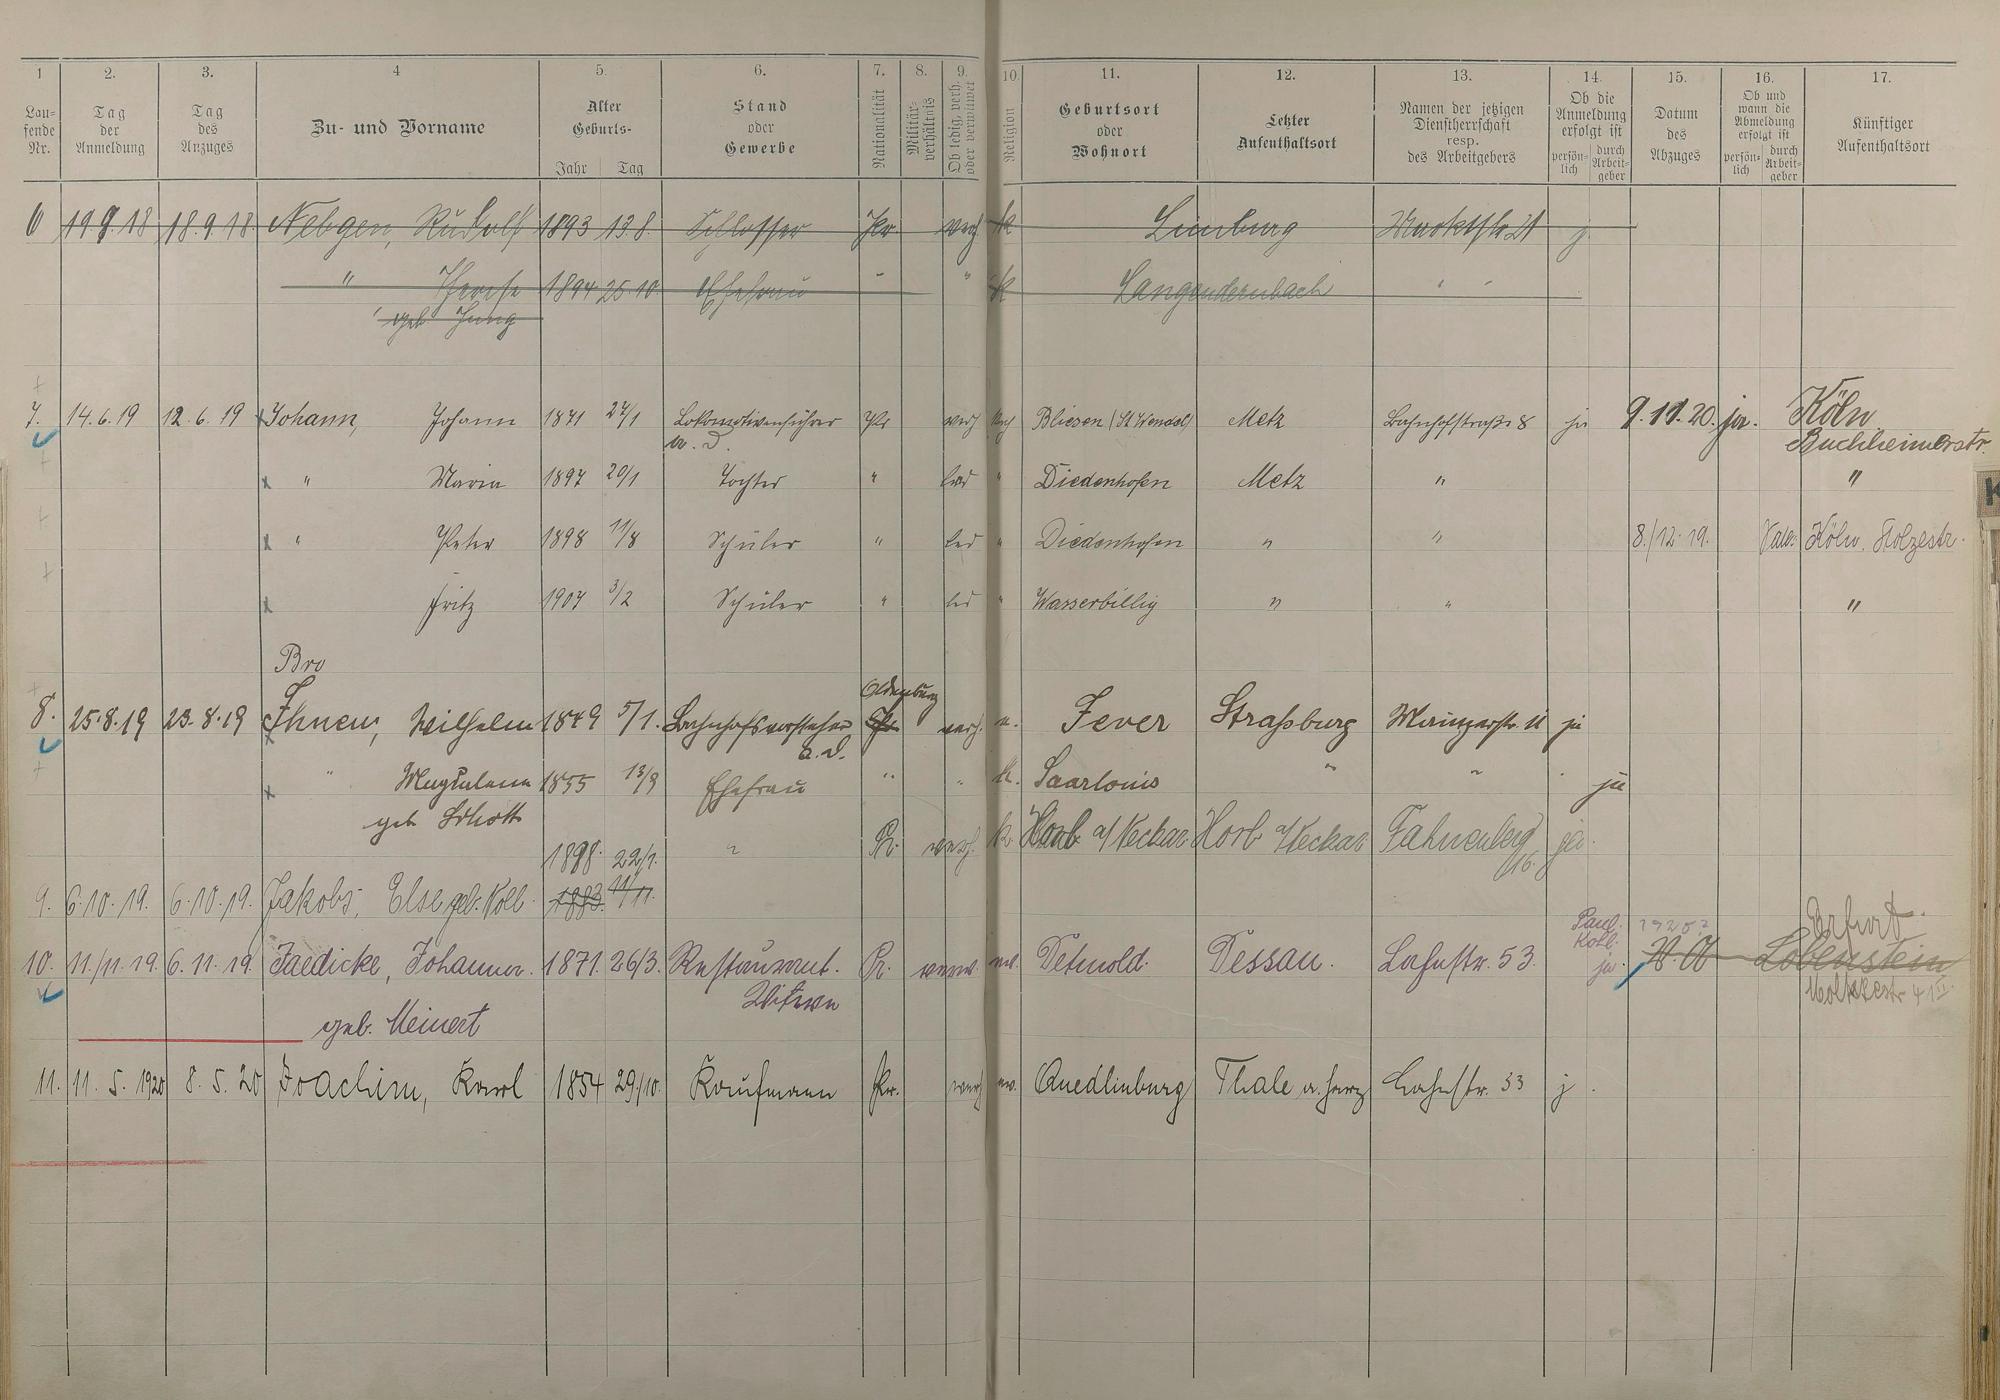 1 2. 3. 4 5. 6. 7. 8. 9. 10. 11. 12. 13. 14. 15. 16. 17.
Lau-
fende
Nr.
Tag
der
Anmeldung
Tag
des
Anzuges
Zu- und Vorname
Alter
Geburts-
Jahr Tag
Stand
oder
Gewerbe
Nationalität
Militär-
verhältnis
Ob ledig, verh.
oder verwitwet
Religion
Geburtsort
oder
Wohnort
Letzter
Aufenthaltsort
Namen der jetzigen
Dienstherrschaft
resp.
des Arbeitgebers
Ob die
Anmeldung
erfolgt ist
persön-
lich
durch
Arbeit-
geber
Datum
des
Abzuges
Ob und
wann die
Abmeldung
erfolgt ist
persön-
lich
durch
Arbeit-
geber
Künftiger
Aufenthaltsort
6 19.9.18 18.9.18. Nebgen, Rudolf 1893 13.8. Schlosser Pr. verh k Limburg Marktstr. 21 j.
" Therese 1894 25.10. Ehefrau " " k Langendernbach " "
geb Jung
7. 14.6.19 12.6.19 Johann, Johann 1871 27/1 Lokomotivenführer Pr verh Bliesen (St Wendel) Metz Bahnhofstraße 8 ja 9.11.20. ja. Köln
a. D. Buchheimerstr.
" Maria 1897 20/1 Tochter " led " Diedenhofen Metz " "
" Peter 1898 11/8 Schüler " led " Diedenhofen " " 8./12.19. Köln, Holzestr.
Fritz 1907 3/2 Schüler " led " Wasserbillig " " "
Bro
Oldenburg
8. 25.8.19 23.8.19 Ihnen, Wilhelm 1849 5/1. Bahnhofsvorsteher verh. Jever Straßburg Mainzerstr. 11 ja
a. D.
" Magdalena 1855 13/9 Ehefrau " " k. Saarlouis " " ja
geb Schott
1898. 22/1. " Pr. verh. k Horb a/Neckar Horb a/Neckar Fahnenberg ja.
16.
9. 6.10.19. 6.10.19. Jakobs, Else geb. Koll. 1883. 11/11.
Paul.
Koll.
Erfurt.
10. 11./11.19. 6.11.19. Jaedicke, Johanna. 1871. 26/3. Restaurant. Pr. verw. ev. Detmold. Dessau. Lahnstr. 53. ja. Lobenstein
Witwe Moltkestr 41 II.
geb. Meinert
11. 11. 5. 1920 8. 5. 20 Joachim, Karl 1854 29/10. Kaufmann Pr. verh ev. Quedlinburg Thale a. Harz Lahnstr. 33 j.